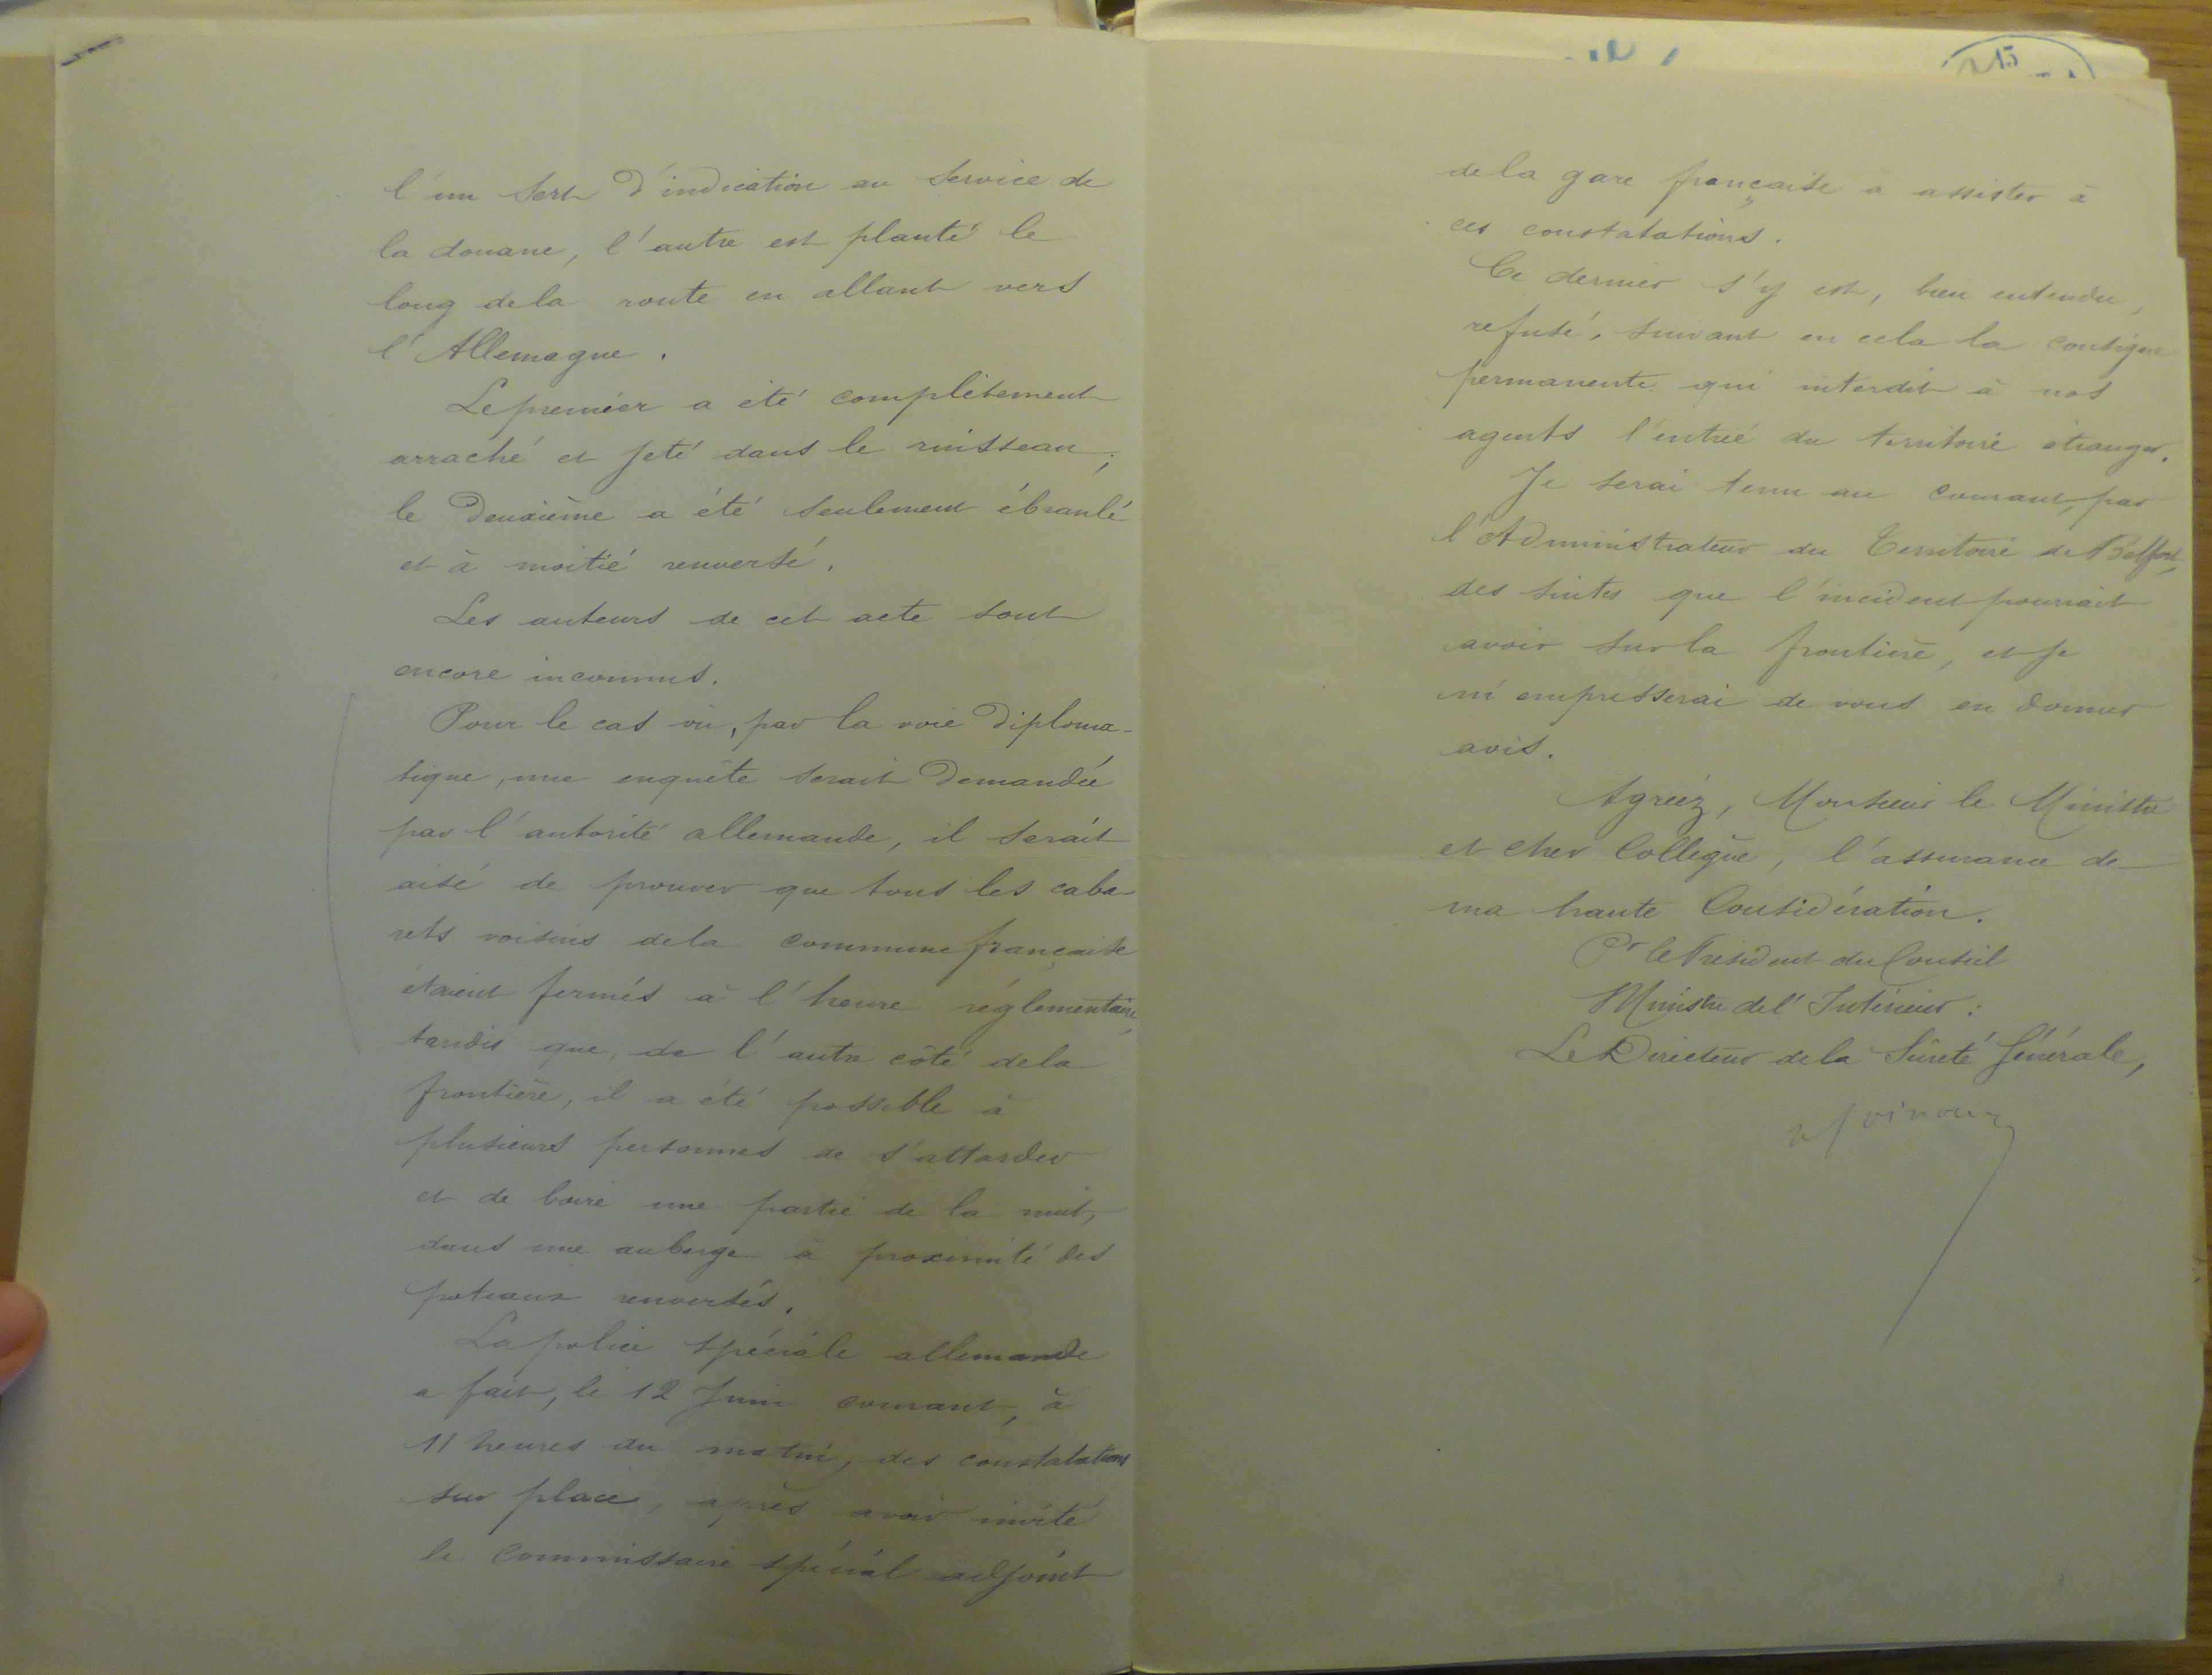 l'un sert d'indication au service de
la douane, l'autre est planté le
long de la route en allant vers
l'Allemagne.
Le premier a été complètement
arraché et jeté dans le ruisseau;
le deuxième a été seulement ébranlé
et à moitié renversé.
Les auteurs de cet acte sont
encore inconnus.
Pour le cas où, par la voie diploma-
tique, une enquête serait demandée
par l'autorité allemande, il serait
aisé de prouver que tous les caba-
rets voisins de la commune française
étaient fermés à l'heure réglementaire,
tandis que, de l'autre côté de la
frontière, il a été possible à
plusieurs personnes de s'attarder
et de boire une partie de la nuit,
dans une auberge à proximité des
poteaux renversés.
La police spéciale allemande
a fait, le 12 Juin courant, à
11 heures du matin, des constatations
sur place, après avoir invité
le Commissaire spécial adjoint
de la gare française à assister à
ces constatations.
Ce dernier s'y est, bien entendu,
refusé, suivant en cela la consigne
permanente qui interdit à nos
agents l'entrée du territoire étranger.
Je serai tenu au courant, par
l'Administrateur du Territoire de Belfort,
des suites que l'incident pourrait
avoir sur la frontière, et je
m'empresserai de vous en donner
avis.
Agréez, Monsieur le Ministre
et cher Collègue, l'assurance de
ma haute Considération.
Pr le Président du Conseil
Ministre de l'Intérieur:
Le Directeur de la Sûreté Générale,
15